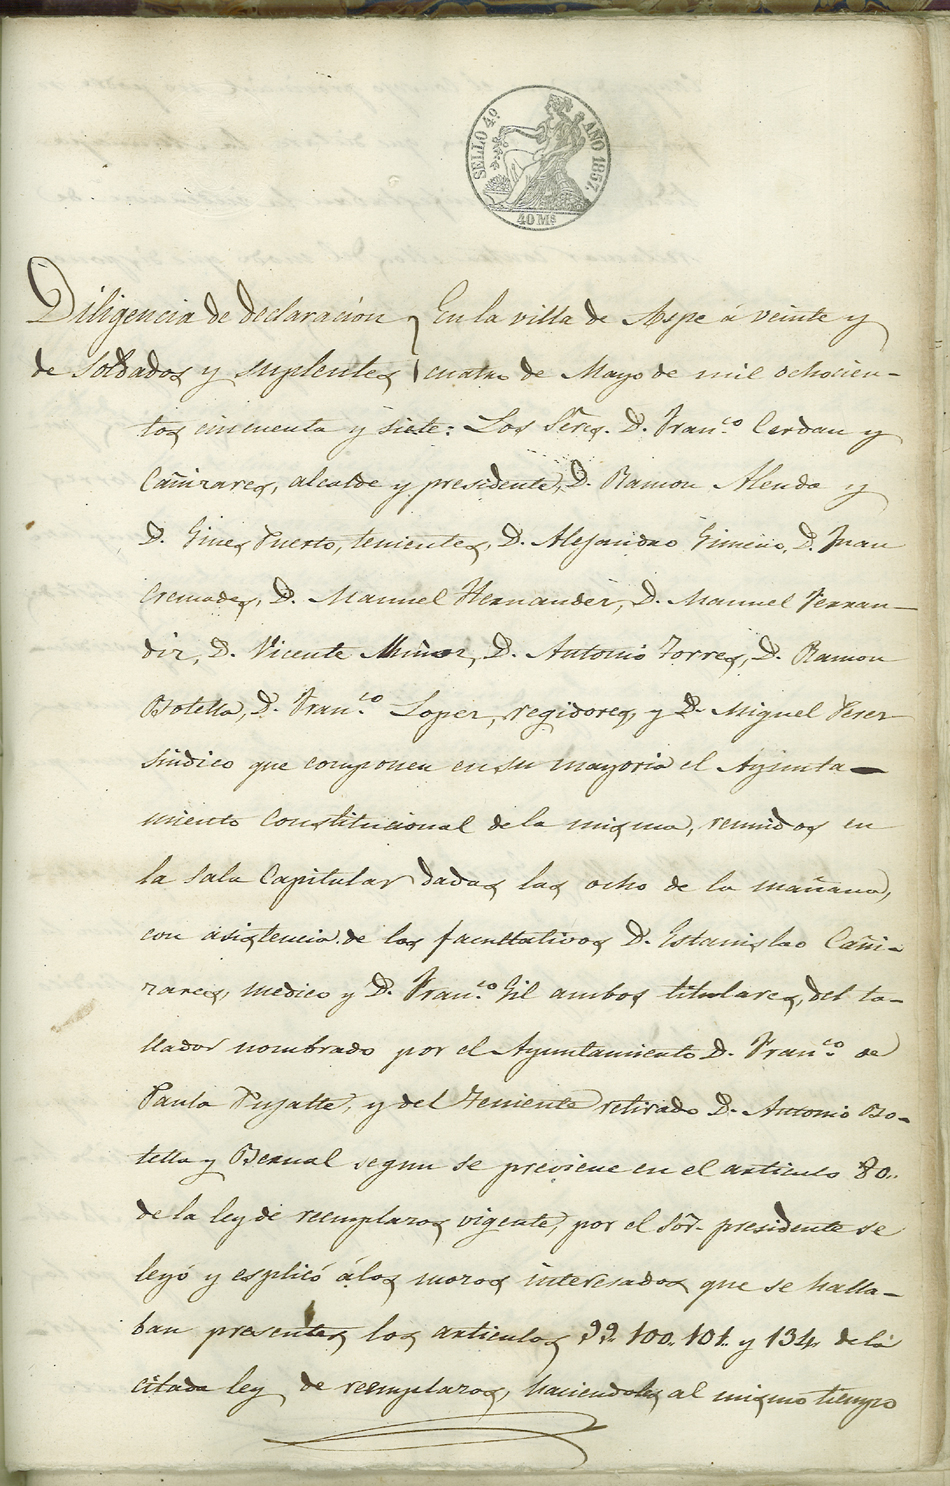 SELLO 4º AÑO 1857.
40 Ms
Diligencia de declaración } En la villa de Aspe á veinte y
de soldados y suplentes } cuatro de Mayo de mil ochocien-
tos cincuenta y siete: Los Sres. D. Franco. Cerdan y
Cañizares, alcalde y presidente, D. Ramon Alenda y
D. Gines Puerto, tenientes, D. Alejandro Gimeno, D. Juan
Cremades, D. Manuel Hernandez, D. Manuel Ferran-
diz, D. Vicente Muñoz, D. Antonio Torres, D. Ramon
Botella, D. Franco. Lopez, regidores, y D. Miguel Perez
síndico que componen en su mayoria el Ayunta-
miento Constitucional de la misma, reunidos en
la sala Capitular dadas las ocho de la mañana,
con asistencia de los facultativos D. Estanislao Cañi-
zares, medico y D. Franco. Gil ambos titulares, del ta-
llador nombrado por el Ayuntamiento D. Franco. de
Paula Pujalte, y del Teniente retirado D. Antonio Bo-
tella y Bernal segun se previene en el articulo 80.
de la ley de reemplazos vigente, por el Sor. presidente se
leyó y esplicó á los mozos interesados que se halla-
ban presentes los articulos 99. 100. 101. y 134 de la
citada ley de reemplazos, haciendoles al mismo tiempo